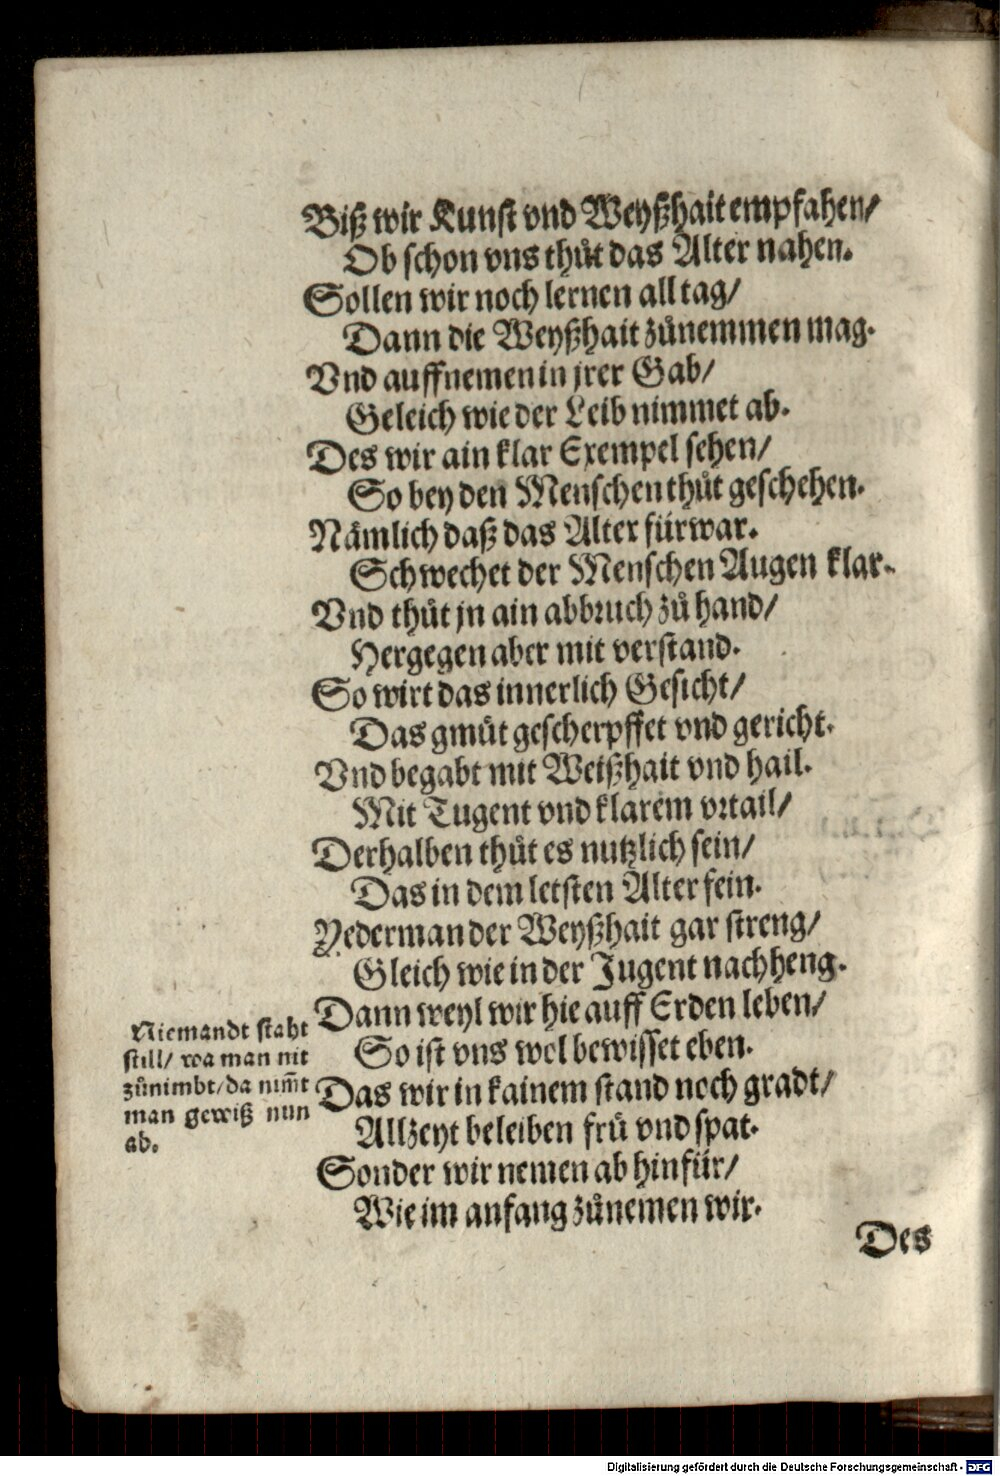 Biß wir Kunst vnd Weyßhait empfahen/
Ob schon vns thůt das Alter nahen.
Sollen wir noch lernen all tag/
Dann die Weyßhait zůnemmen mag.
Vnd auffnemen in jrer Gab/
Geleich wie der Leib nimmet ab.
Des wir ain klar Exempel sehen/
So bey den Menschen thůt geschehen.
Nämlich daß das Alter fürwar.
Schwechet der Menschen Augen klar.
Vnd thůt jn ain abbruch zů hand/
Hergegen aber mit verstand.
So wirt das innerlich Gesicht/
Das gmůt gescherpffet vnd gericht.
Vnd begabt mit Weißhait vnd hail.
Mit Tugent vnd klarem vrtail/
Derhalben thůt es nutzlich sein/
Das in dem letsten Alter fein.
Yederman der Weyßhait gar streng/
Gleich wie in der Jugent nachheng.
Dann weyl wir hie auff Erden leben/
So ist vns wol bewisset eben.
Das wir in kainem stand noch gradt/
Allzeyt beleiben frů vnd spat.
Sonder wir nemen ab hinfür/
Wie im anfang zůnemen wir.
Niemandt staht
still/ wa man nit
zůnimbt/ da nim̃t
man gewiß nun
ab.
Des
Digitalisierung gefördert durch die Deutsche Forschungsgemeinschaft - DFG